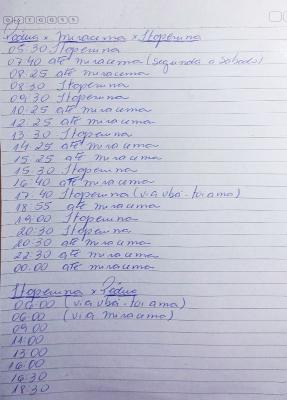 Pádua x Miracema x Itaperuna
05:30 Itaperuna
07:40 até miracema (segunda a Sábado)
08:25 até miracema
08:30 Itaperuna
09:30 Itaperuna
10:25 até miracema
12:25 até miracema
13:30 Itaperuna
14:25 até miracema
15:25 até miracema
15:30 Itaperuna
16:40 até miracema
17:40 Itaperuna (via ubá-
18:55 até miracema
19:00 Itaperuna
20:30 Itaperuna
20:30 até miracema
22:30 até miracema
00:00 até miracema
Itaperuna x Pádua
06:00 (via ubá-
06:00 (via miracema)
09:00
11:00
13:00
16:00
16:30
18:30